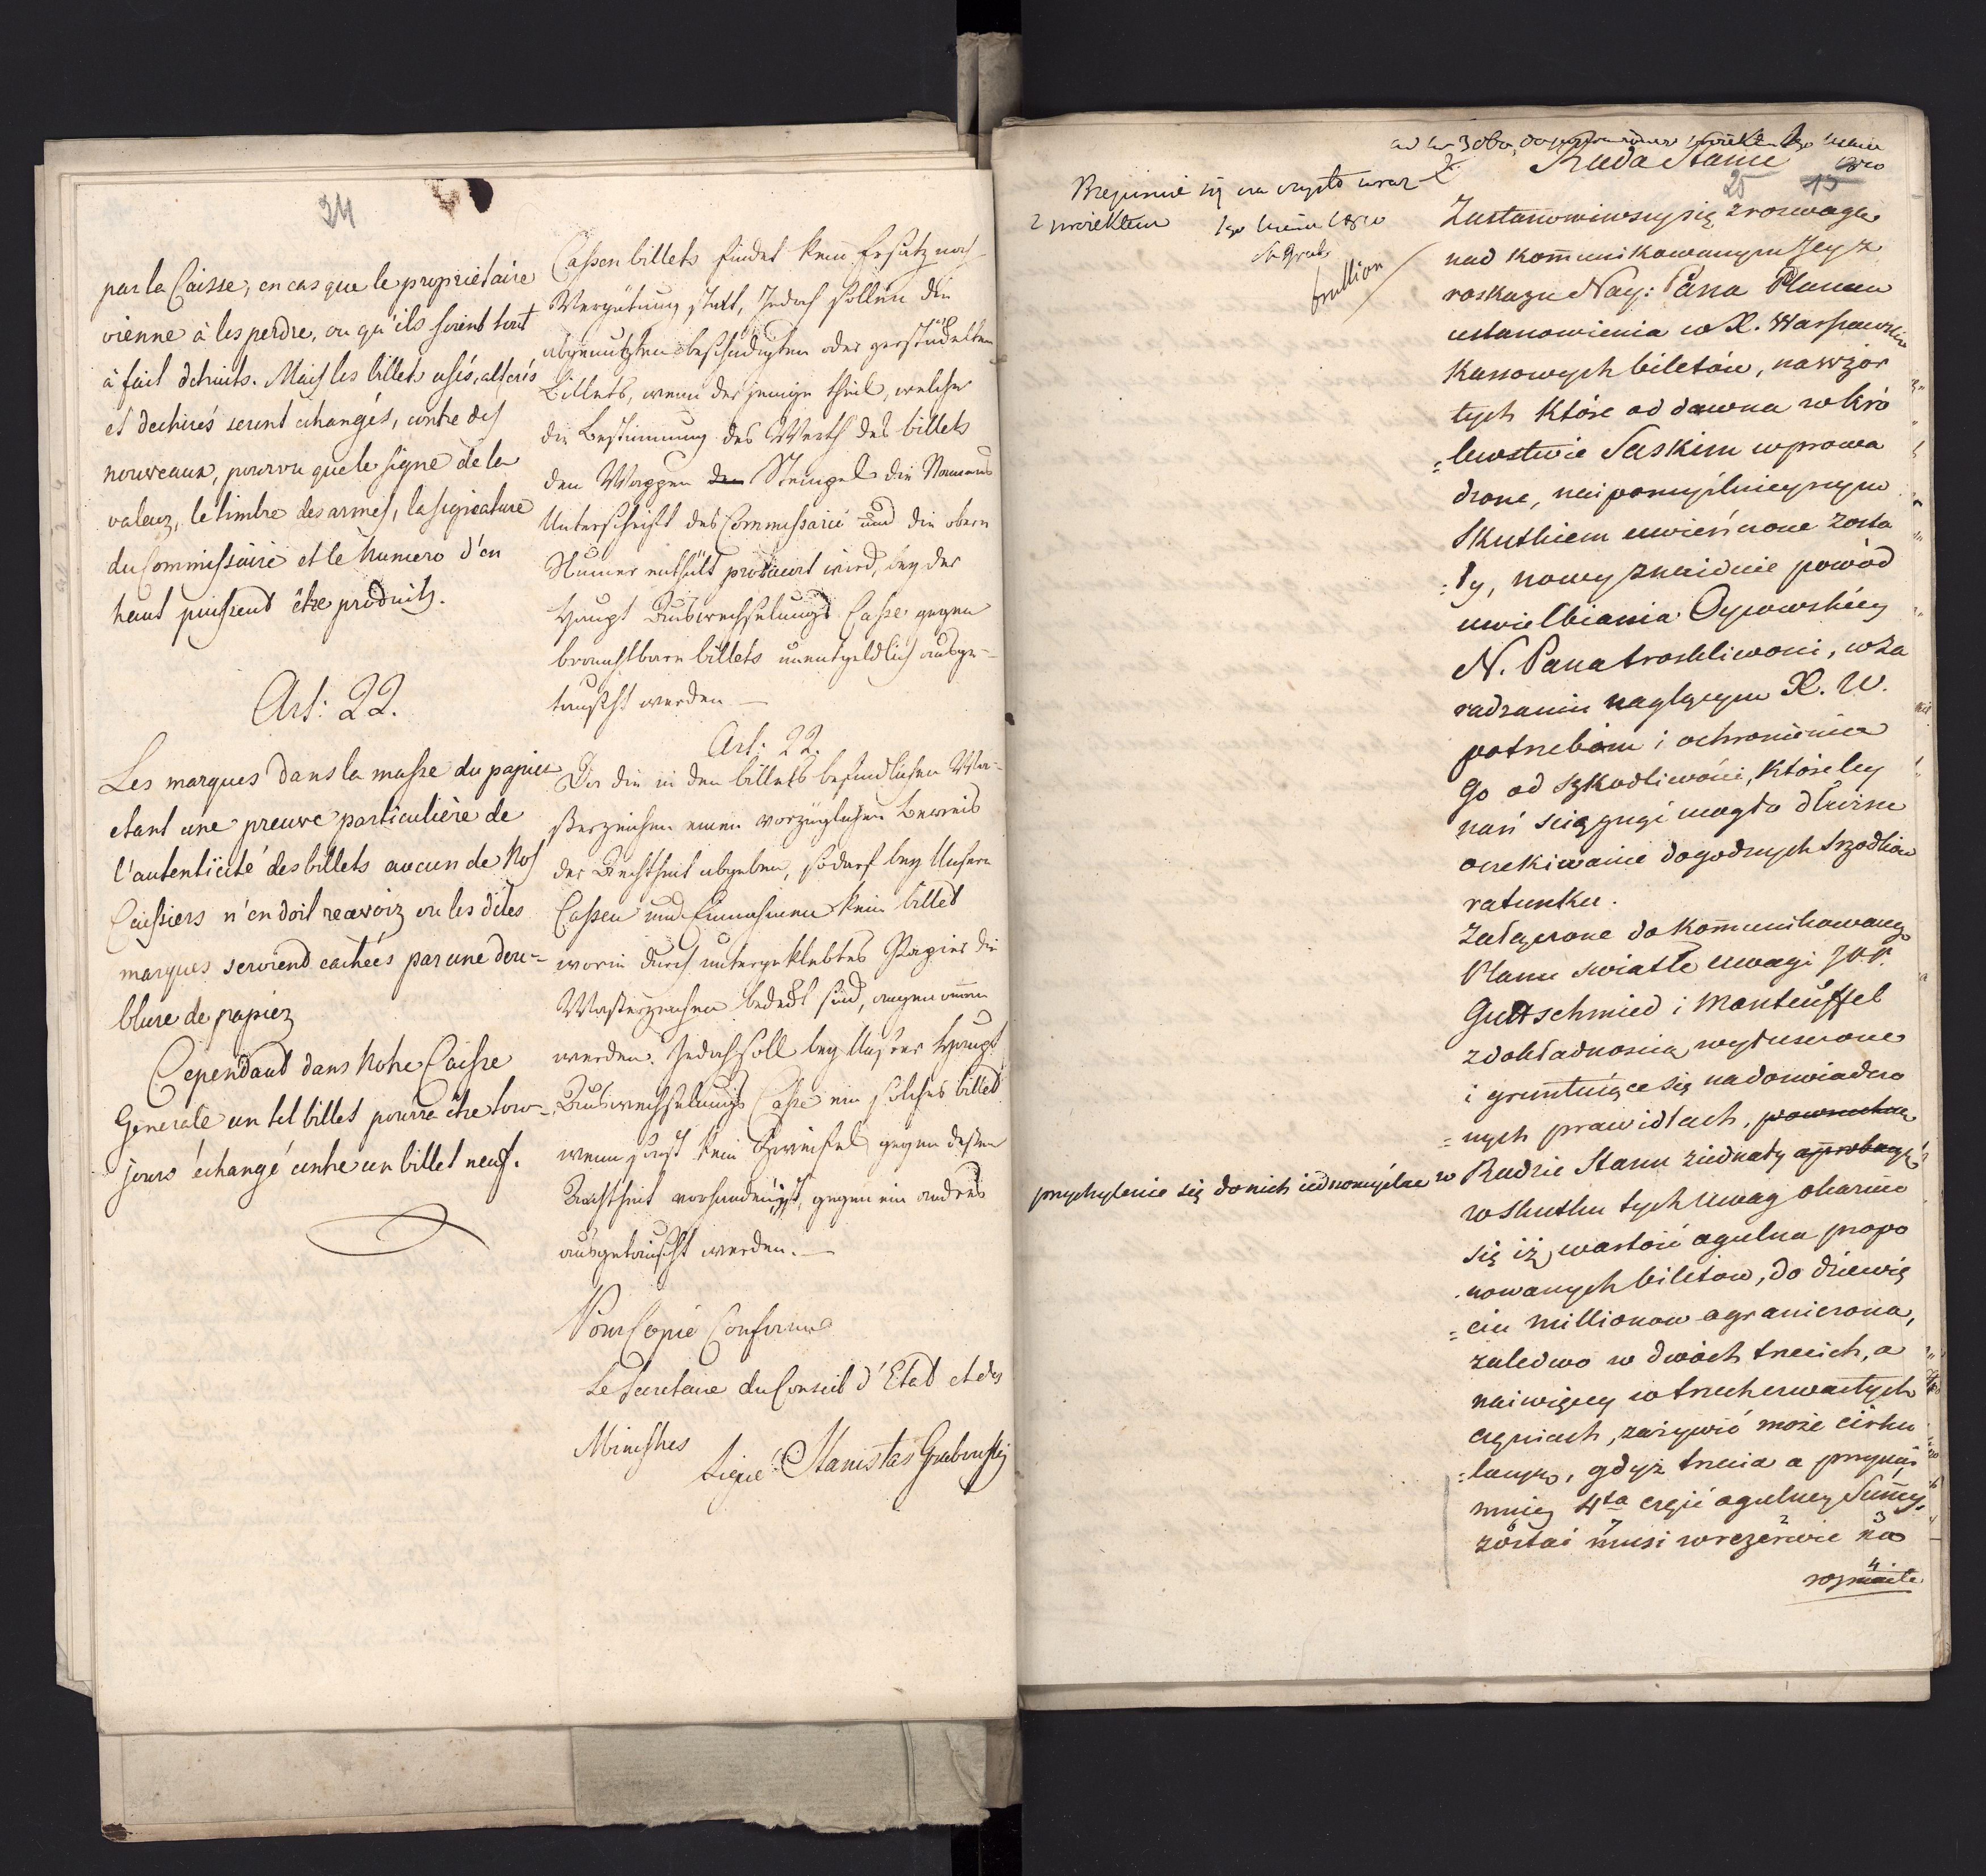 24
par la Caisse, en cas que le proprietaire
vienne à les perdre, ou qu'ils soient tout
à fait detruits. Mais les billets usés, alterés
et dechirés seront echangés, contre des
nouveaux, pourvu que le signe de la
valeur, le timbre des armes, la signature
du Commissaire et le Numero d'en
haut puissent être produits.
Art: 22.
Les marques dans la masse du papier
etant une preuve particulière de
l'autenticité des billets aucun de Nos
Caissiers n'en doit recevoir ou les dites
marques seroient cachées par une dou-
blure de papier
Cependant dans Notre Caisse
Generale un tel billet pourra être tou-
jours échangé contre un billet neuf.
Cassenbillets findet kein Ersatz noch
Vergütung statt, Jedoch sollen die
abgenutzten beschädigten oder zerstückelten
Billets, wenn der jenige theil, welcher
die Bestimmung des Werth des billets
den Wappen Stempel die Namens
Unterschrift des Commissarii und die obere
Numer enthält producirt wird, bey der
Haupt Auswechselungs Casse gegen
brauchbare billets unentgeldlich ausge-
tauscht werden —
Art: 22.
Da die in den billets befindlichen Wa-
sserzeichen einen vorzüglichen Beweis
der Aechtheit abgeben, so darf bey Unsern
Cassen und Einnahmen kein billet
worin durch untergeklebtes Papier die
Wasserzeichen bedeckt sind, angenommen
werden. Jedoch soll bey Unsrer Haupt
Auswechselungs Casse ein solches billet
wenn sonst kein Zweifel gegen dessen
Aechtheit vorhanden ist, gegen ein anderes
ausgetauscht werden. —
Pour Copie Conforme
Le Secretaire du Conseil d'Etat et des
Ministres
Signé: Stanislas Grabowski
Rada Stanu
25 15
Przepisać się na czysto wraz
z proiektem
brullion
Zastanowiwszy się z rozwagą
nad kom̄unikowanym Jey z
roskazu Nay: Pana Planem
ustanowienia w X. Warszawskim
Kassowych biletów, na wzór
tych które od dawna w Kró
=lewstwie Saskim wprowa
dzone, naipomyślnieyszym
Skutkiem uwieńczone zosta
=ły, nowy znaiduie powód
uwielbiania Oycowskiey
N. Pana troskliwości, w za
radzaniu naglącym X. W.
potrzebom i ochronienia
Go od szkodliwości, któreby
nań sciągnąć mogło dłuższe
oczekiwanie dogodnych srzodków
ratunku.
Załączone do kom̄unikowanego
Planu swiatłe uwagi JPP.
Gutschmied i Manteuffel
z dokładnością wytuszczone
i gruntuiące się na doswiadczo
=nych prawidłach, powszechne
przychylenie się do nich iednomyślne w Radzie Stanu ziednały aprobacyą
w skutku tych uwag okazuie
się iż wartość ogulna propo
nowanych biletow, do dziewię
=ciu millionow ograniczona,
zaledwo w dwóch trzecich, a
naiwięcey w trzech czwartych
częściach, zażywić może cirku
=lacyą, gdyż trzecia a przynay
mniey 4ta część ogulney Summy,
zostać musi w rezerwie na
rozmaite